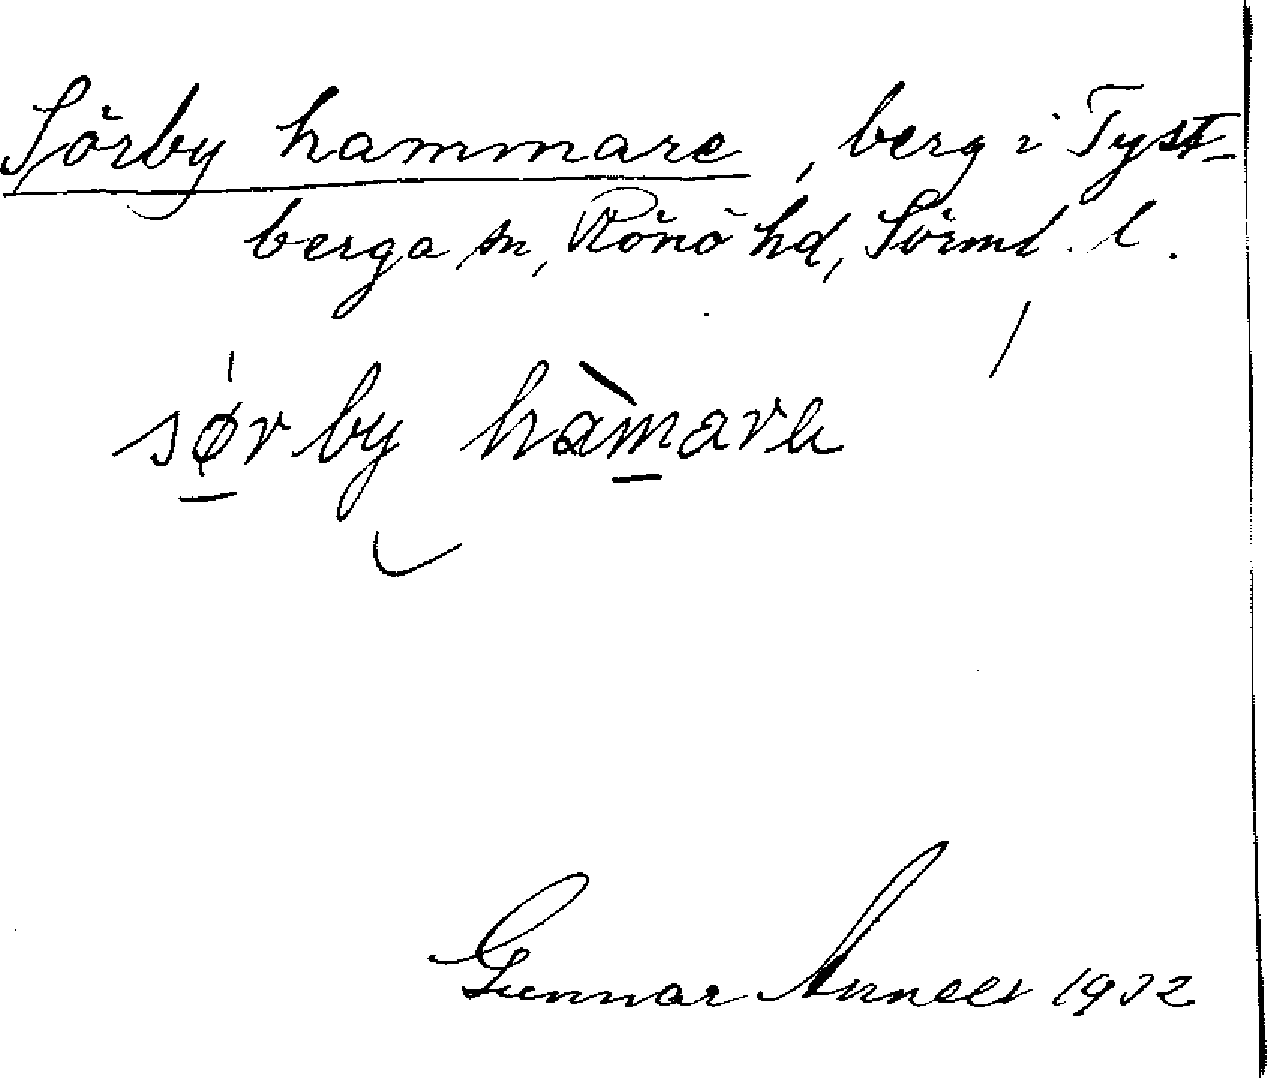 Sörby hammare, berg i Tyst-
berga sn, Rönö hd, Sörml. l.
sørby hàmara
Gunnar 1932